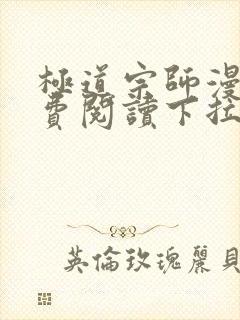 極道宗師漫
費閱讀下拉
英倫玫瑰麗貝